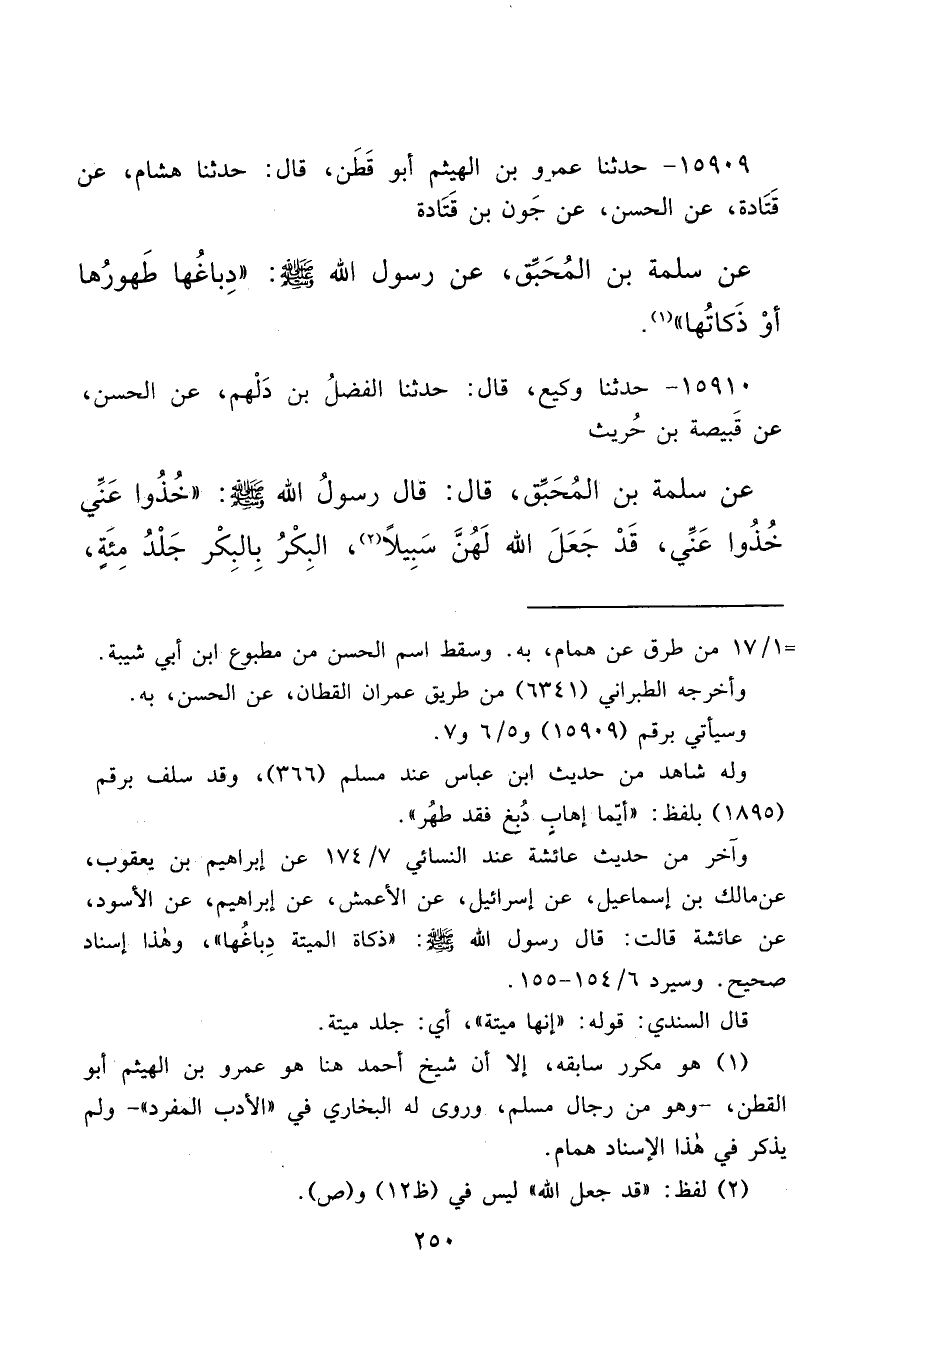 ١٥٩٠٩- حدثنا عمرو بن الهيثم أبو قَطَن، قال: حدثنا هشام، عن
قَتَادة، عن الحسن، عن جَون بن قَتَادة
عن سلمة بن المُحَبِّق، عن رسول الله ﷺ: «دِباغُها طَهورُها
أوْ ذَكاتُها»(١).
١٥٩١٠- حدثنا وكيع، قال: حدثنا الفضلُ بن دَلْهم، عن الحسن،
عن قَبيصة بن حُريث
عن سلمة بن المُحَبِّق، قال: قال رسولُ الله ﷺ: «خُذُوا عَنِّي
خُذُوا عَنِّي، قَدْ جَعَلَ الله لَهُنَّ سَبِيلاً(٢)، البِكْرُ بِالبِكْر جَلْدُ مِئَةٍ،
=١٧/١ من طرق عن همام، به. وسقط اسم الحسن من مطبوع ابن أبي شيبة.
وأخرجه الطبراني (٦٣٤١) من طريق عمران القطان، عن الحسن، به.
وسيأتي برقم (١٥٩٠٩) و٦/٥ و٧.
وله شاهد من حديث ابن عباس عند مسلم (٣٦٦)، وقد سلف برقم
(١٨٩٥) بلفظ: «أيّما إهابٍ دُبِغ فقد طهُر».
وآخر من حديث عائشة عند النسائي ١٧٤/٧ عن إبراهيم بن يعقوب،
عن مالك بن إسماعيل، عن إسرائيل، عن الأعمش، عن إبراهيم، عن الأسود،
عن عائشة قالت: قال رسول الله ﷺ: «ذكاة الميتة دِباغُها»، وهٰذا إسناد
صحيح. وسيرد ١٥٤/٦-١٥٥.
قال السندي: قوله: «إنها ميتة»، أي: جلد ميتة.
(١) هو مكرر سابقه، إلا أن شيخ أحمد هنا هو عمرو بن الهيثم أبو
القطن، -وهو من رجال مسلم، وروى له البخاري في «الأدب المفرد»- ولم
يذكر في هٰذا الإسناد همام.
(٢) لفظ: «قد جعل الله» ليس في (ظ١٢) و(ص).
٢٥٠